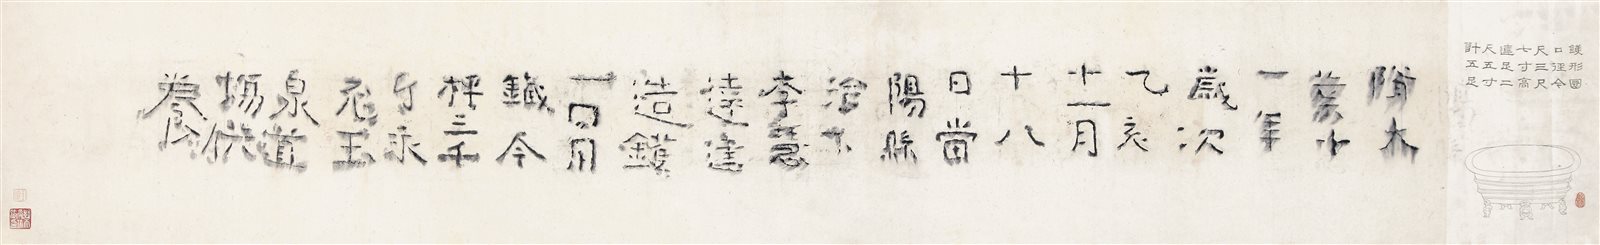 鑊形圖
口徑今
尺三尺
七寸高
連足二
尺五寸
計五足
隋大
業十
一年
歲次
乙亥
十一月
十八
日當
陽縣
治下
李慧
達建
造鑊
一口用
鐵今
秤三千
斤永
充玉
泉道
場供
養